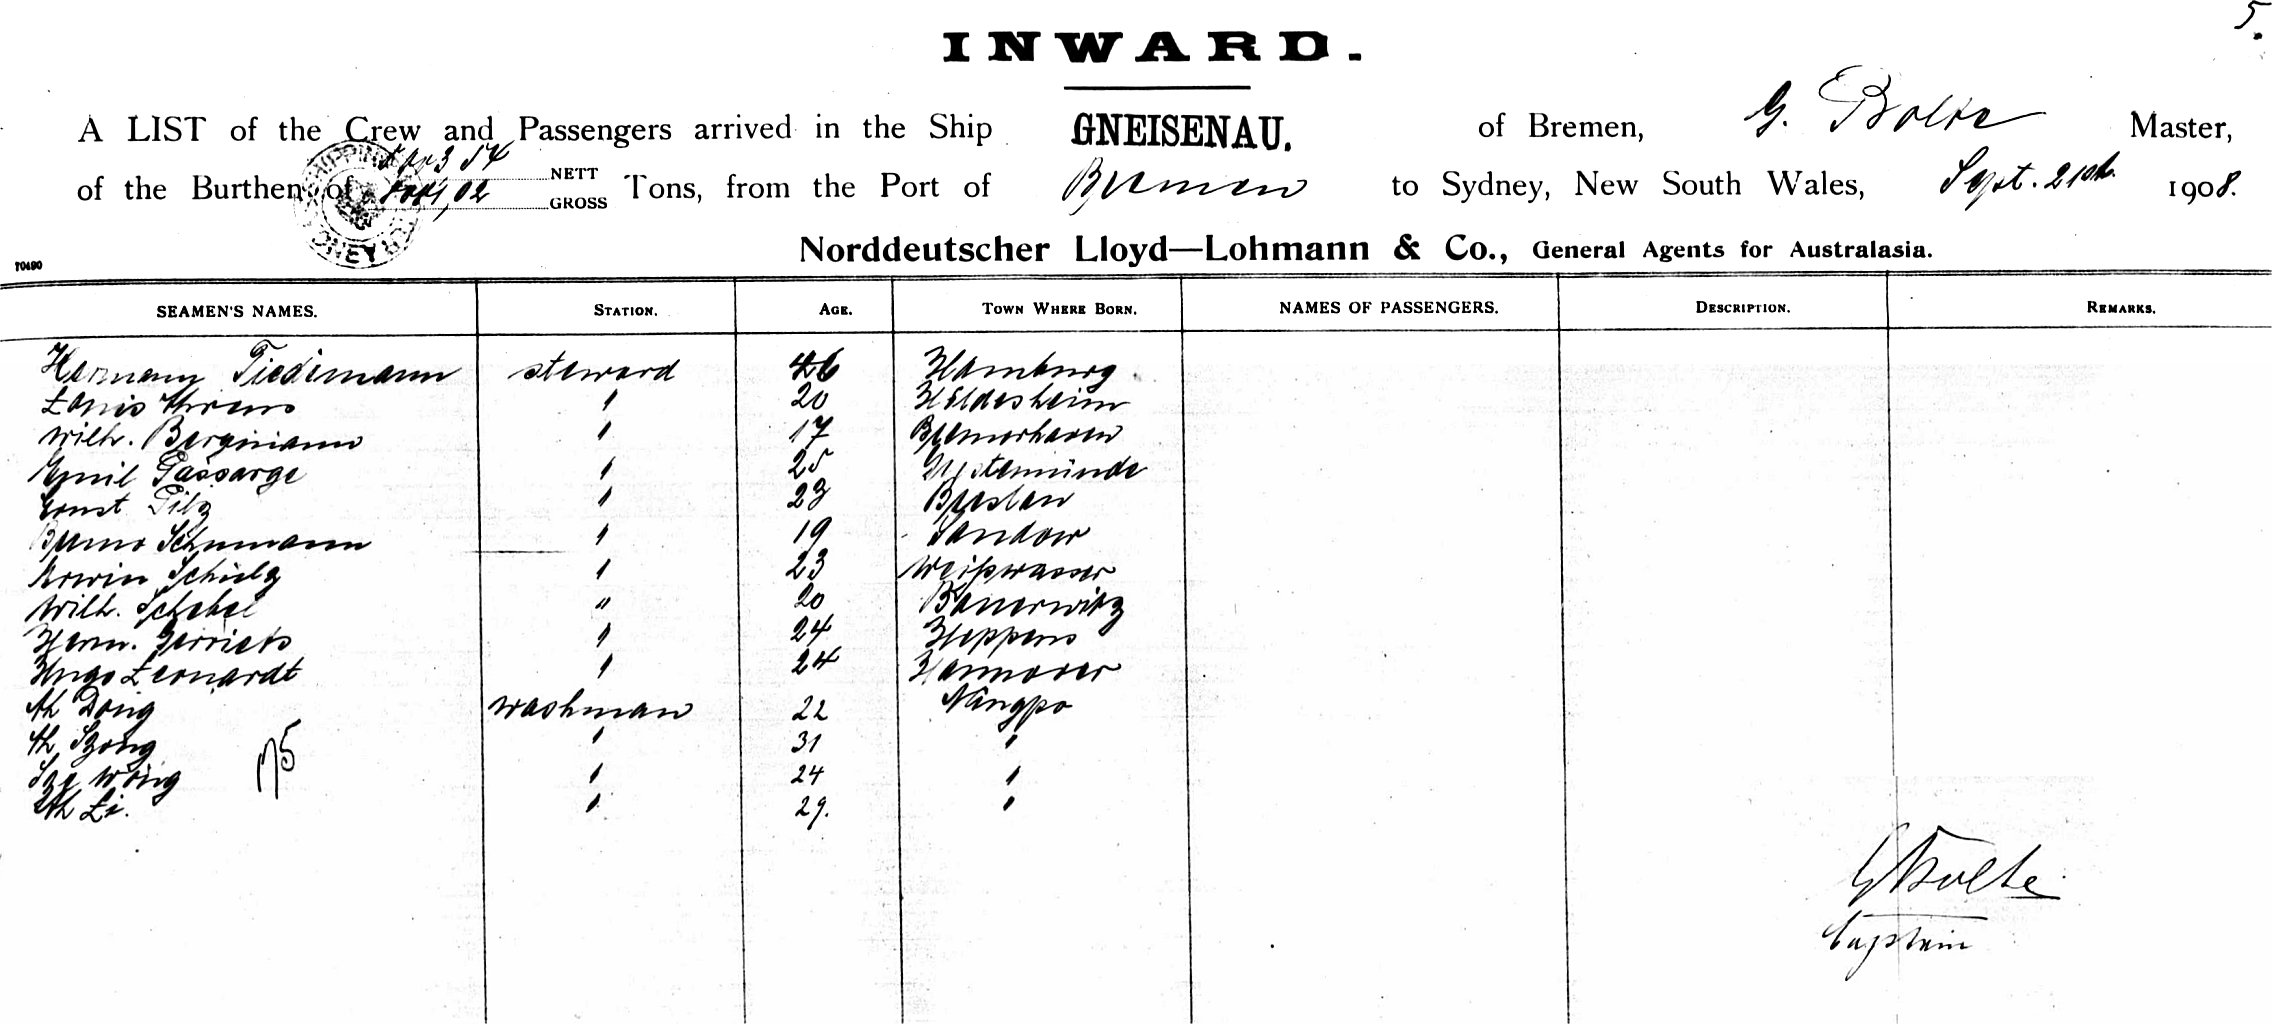 5.
INWARD.
A LIST of the Crew and Passengers arrived in the Ship GNEISENAU. of Bremen, G. Bolte Master,
of the Burthen of NETT
GROSS Tons, from the Port of Bremen to Sydney, New South Wales, Sept. 21st. 1908.
Norddeutscher Lloyd—Lohmann & Co., General Agents for Australasia.
70490
SEAMEN'S NAMES. STATION. AGE. TOWN WHERE BORN. NAMES OF PASSENGERS. DESCRIPTION. REMARKS.
Hermann Tiedemann steward 46 Hamburg
Louis Ahrens " 20 Hildesheim
Wilh. Bergmann " 17 Bremerhaven
Emil Passarge " 25 Geestemünde
Ernst Pilz " 23 Breslau
Bruno Schumann " 19 Sandow
Erwin Schulz " 23 Weißwasser
Wilh. Schebel " 20 Bauerwitz
Herm. Gerriets " 24 Heppens
Hugo Leonardt " 24 Hannover
Ah Dong washman 22 Ningpo
Ah Szong " 31 "
Sze Wong " 24 "
Ah Li. " 29. "
175
G Bolte
Captain